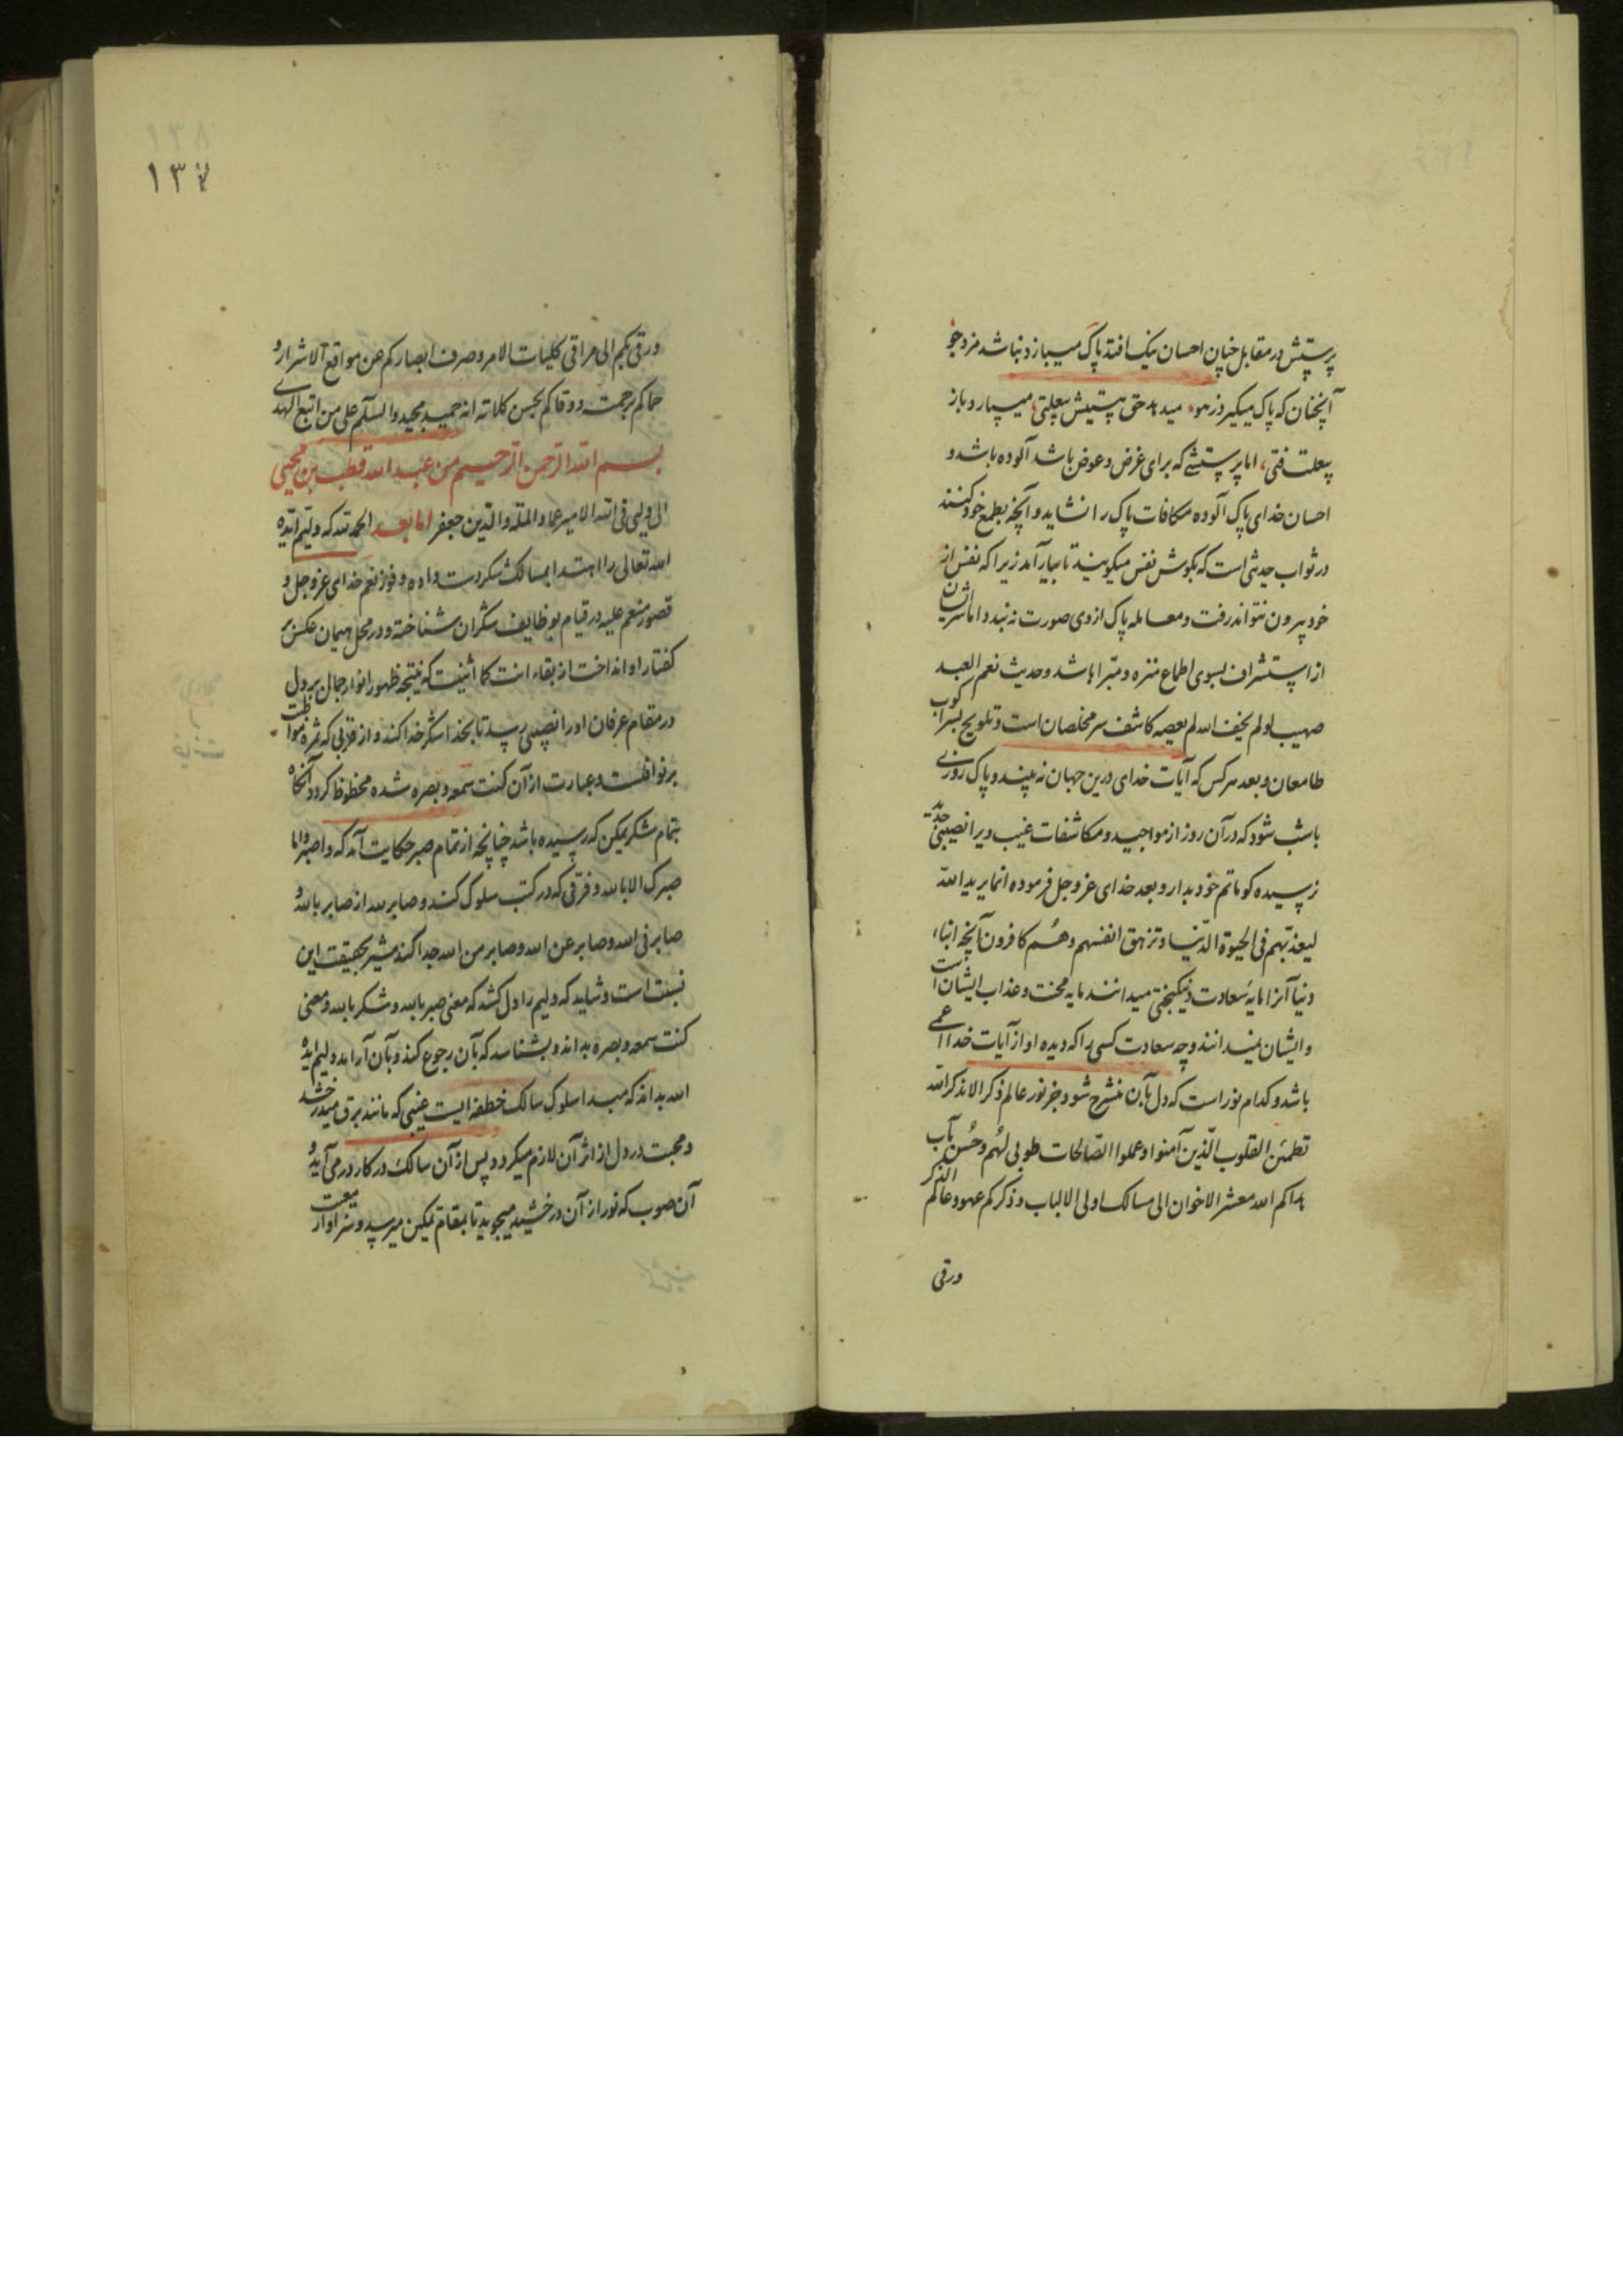 پرستش در مقابل چنان احسان نیک افتد پاک میبازد نباشد مزدجو
آنچنان که پاک میگیرد ز هو میدهد حق هستیش بیعلتی میسپارد باز
بیعلت فتی اما پرستشی که برای غرض و عوض باشد آلوده باشد و
احسان خدای پاک آلوده مکافات پاک را نشاید و آنچه بطمع خود کنند
در ثواب حدیثی است که بگوش نفس میگویند تا بکار آمد زیرا که نفس از
خود بیرون نتواند رفت و معامله پاک از وی صورت نه بندد اما سر ایشان
از استشراف بسوی اطماع منزه و مبرا باشد و حدیث نعم العبد
صهیب لو لم یخف الله لم یعصه کاشف سر مخلصان است و تلویح بسرا کوب
طامعان و بعد هر کس که آیات خدای درین جهان نه بیند و پاک روزی
باشب شود که در آن روز از مواجید و مکاشفات غیب ویرا نصیبی
نرسیده کو ماتم خود بدار و بعد خدای عز و جل فرموده انما یرید الله
لیعذبهم فی الحیوة الدنیا و تزهق انفسهم و هم کافرون آنچه ابناء
دنیا آنرا مایه سعادت و نیکبختی میدانند مایه محنت و عذاب ایشان است
و ایشان نمیدانند و چه سعادت کسی را که دیده او از آیات خدا اعمی
باشد و کدام نور است که دل بآن منشرح شود جز نور عالم ذکر الا بذکر الله
تطمئن القلوب الذین آمنوا و عملوا الصالحات طوبی لهم و حسن مآب
هداکم الله معشر الاخوان الی مسالک اولی الالباب و ذکرکم عهود عالم الذکر
ورقی
١٣٨
١٣٧
ورقی بکم الی مراقی کلیات الامر و صرف ابصارکم عن مواقع الاشرار و
حماکم برحمته و وقاکم بحسن کلاته انه حمید مجید والسلام علی من اتبع الهدی
بسم الله الرحمن الرحیم من عبد الله قطب بن محیی
الی ولیی فی الله الامیر عماد الملة والدین جعفر اما بعد الحمد لله که ولیم ایده
الله تعالی را اهتدا بمسالک شکر دست داده و فوز نعم خدای عز و جل و
قصور منعم علیه در قیام بوظایف شکران شناخته و در محل همان عکس بر
کفتار او انداخت از بقاء انت کما اثنیت که نتیجه ظهور انوار جمال بر دل
در مقام عرفان او را نصیبی رسد تا بخدا شکر خدا کند و از قربی که ثمره مواظبت
بر نوافلست و عبارت از آن کنت سمعه و بصره شده محظوظ کردد آنکاه
بتمام شکر یمکن که رسیده باشد چنانچه از تمام صبر حکایت آمد که واصبر و ما
صبرک الا بالله و فرقی که در کتب سلوک کنند و صابر لله از صابر بالله و
صابر فی الله و صابر عن الله و صابر من الله جدا کنند مشیر بحقیقت این
نسبت است و شاید که ولیم را دل کشد که معنی صبر بالله و شکر بالله و معنی
کنت سمعه و بصره بداند و بشناسد که بآن رجوع کند و بآن آرامد ولیم ایده
الله بداند که مبدا سلوک سالک خطفه ایست غیبی که مانند برق میدرخشد
و محبت در دل از اثر آن لازم میکردد و پس از آن سالک در کار در می آید و
آن صوب که نور از آن درخشید میجوید تا بمقام تمکین میرسد و سزاوار معیت